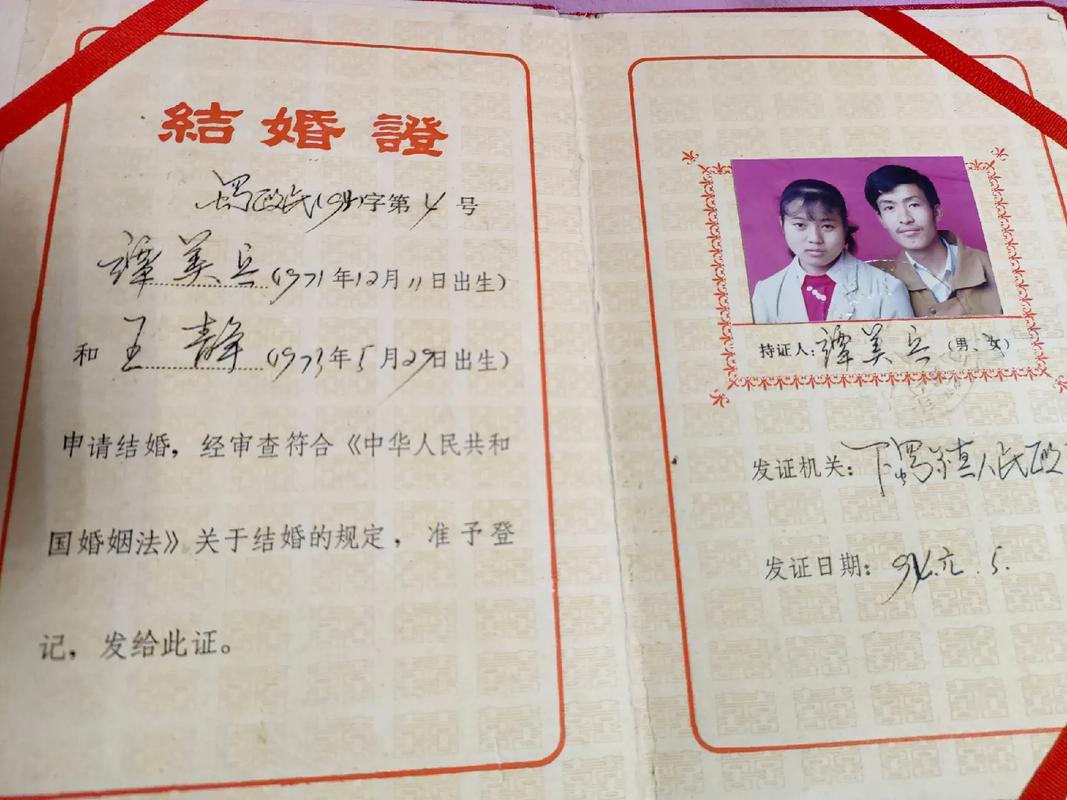 結婚證
字第4号
譚美兵(1971年12月11日出生)
和王静(1973年5月29日出生)
申请结婚，经审查符合《中华人民共和
国婚姻法》关于结婚的规定，准予登
记，发给此证。
持证人：譚美兵(男、女)
发证机关：下 镇人民政
发证日期：94.元.5.